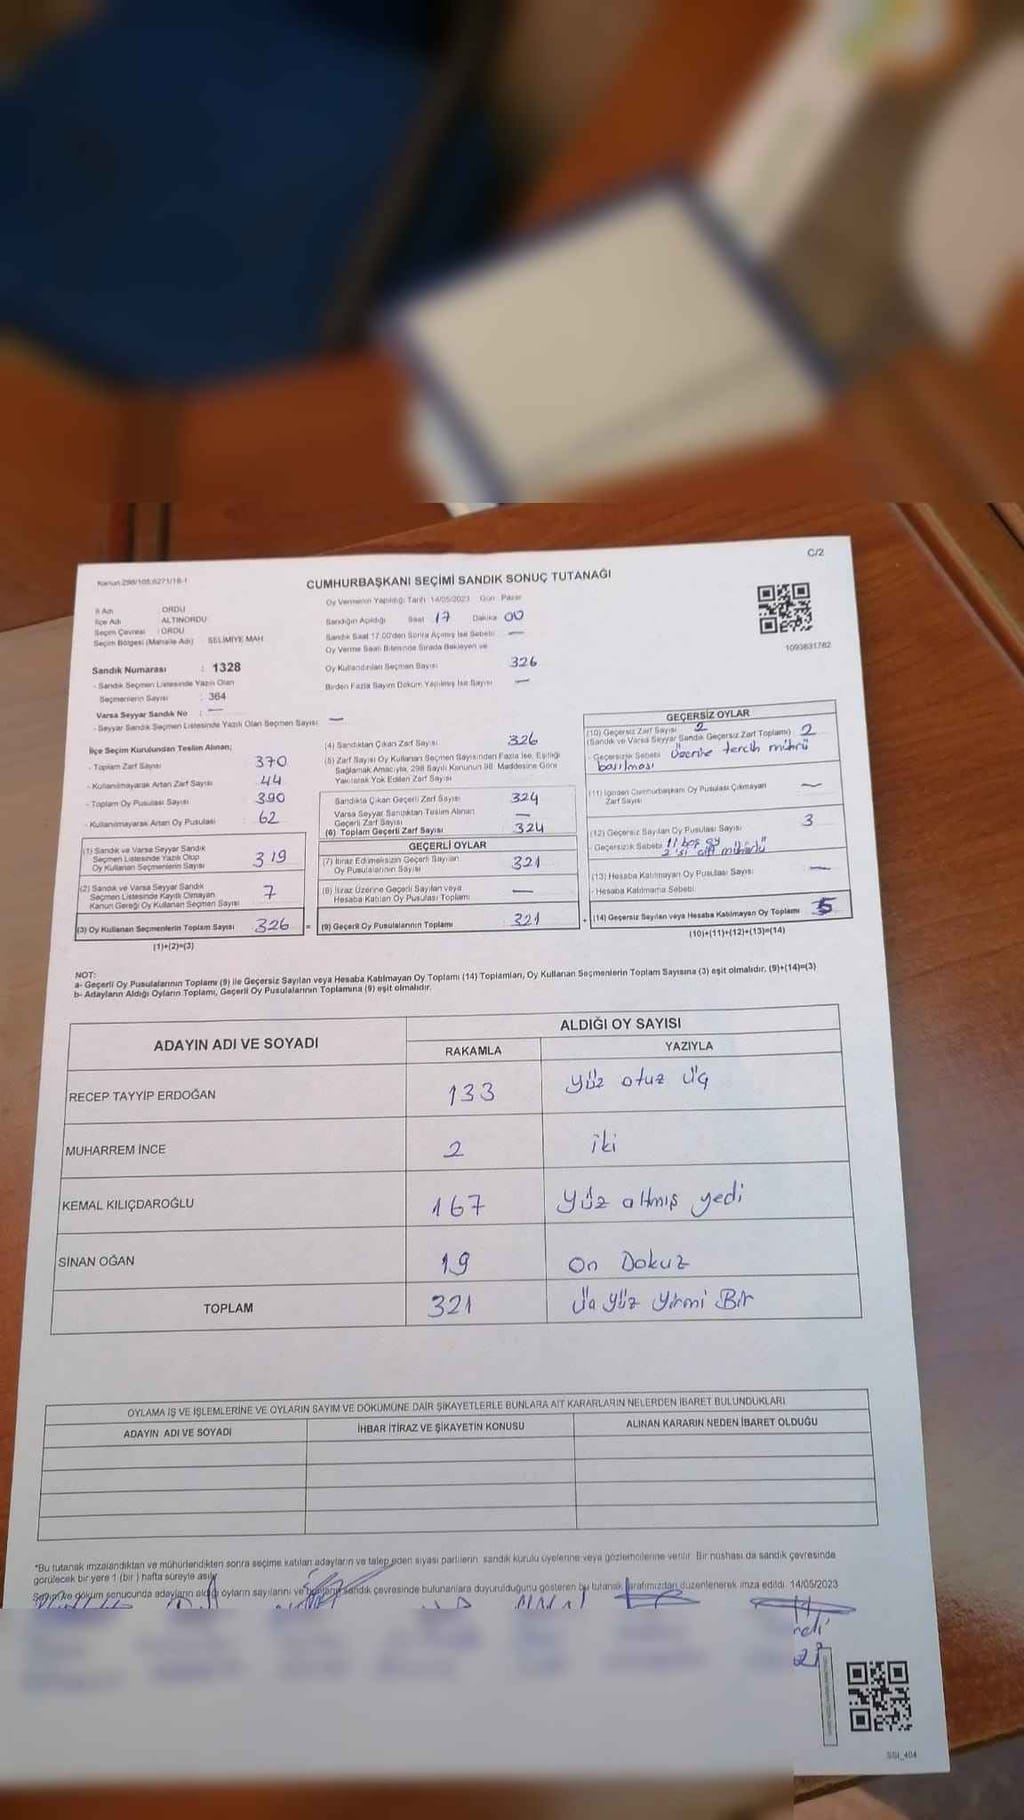 C/2
Kanun 298/105;6271/18-1
CUMHURBAŞKANI SEÇİMİ SANDIK SONUÇ TUTANAĞI
İl Adı : ORDU
İlçe Adı : ALTINORDU
Seçim Çevresi : ORDU
Seçim Bölgesi (Mahalle Adı) : SELİMİYE MAH
Oy Vermenin Yapıldığı Tarih : 14/05/2023 Gün : Pazar
Sandığın Açıldığı Saat 17 Dakika 00
Sandık Saat 17.00'den Sonra Açılmış İse Sebebi : —
Oy Verme Saati Bitiminde Sırada Bekleyen ve
Oy Kullandırılan Seçmen Sayısı 326
Birden Fazla Sayım Döküm Yapılmış İse Sayısı —
1093631762
Sandık Numarası : 1328
- Sandık Seçmen Listesinde Yazılı Olan
Seçmenlerin Sayısı : 364
Varsa Seyyar Sandık No : —
- Seyyar Sandık Seçmen Listesinde Yazılı Olan Seçmen Sayısı : —
İlçe Seçim Kurulundan Teslim Alınan;
- Toplam Zarf Sayısı 370
- Kullanılmayarak Artan Zarf Sayısı 44
- Toplam Oy Pusulası Sayısı 390
- Kullanılmayarak Artan Oy Pusulası 62
(1) Sandık ve Varsa Seyyar Sandık
Seçmen Listesinde Yazılı Olup
Oy Kullanan Seçmenlerin Sayısı 319
(2) Sandık ve Varsa Seyyar Sandık
Seçmen Listesinde Kayıtlı Olmayan
Kanun Gereği Oy Kullanan Seçmen Sayısı 7
(3) Oy Kullanan Seçmenlerin Toplam Sayısı 326
(1)+(2)=(3)
(4) Sandıktan Çıkan Zarf Sayısı 326
(5) Zarf Sayısı Oy Kullanan Seçmen Sayısından Fazla İse, Eşitliği
Sağlamak Amacıyla, 298 Sayılı Kanunun 98. Maddesine Göre
Yakılarak Yok Edilen Zarf Sayısı
Sandıkta Çıkan Geçerli Zarf Sayısı 324
Varsa Seyyar Sandıktan Teslim Alınan
Geçerli Zarf Sayısı —
(6) Toplam Geçerli Zarf Sayısı 324
GEÇERLİ OYLAR
(7) İtiraz Edilmeksizin Geçerli Sayılan
Oy Pusulasının Sayısı 321
(8) İtiraz Üzerine Geçerli Sayılan veya
Hesaba Katılan Oy Pusulası Toplamı —
= (9) Geçerli Oy Pusulalarının Toplamı 321 +
GEÇERSİZ OYLAR
(10) Geçersiz Zarf Sayısı 2
(Sandık ve Varsa Seyyar Sandık Geçersiz Zarf Toplamı) 2
- Geçersizlik Sebebi Üzerine tercih mührü
basılması
(11) İçinden Cumhurbaşkanı Oy Pusulası Çıkmayan
Zarf Sayısı —
(12) Geçersiz Sayılan Oy Pusulası Sayısı 3
- Geçersizlik Sebebi 1'i boş oy
2'si çift mühürlü
(13) Hesaba Katılmayan Oy Pusulası Sayısı —
- Hesaba Katılmama Sebebi
(14) Geçersiz Sayılan veya Hesaba Katılmayan Oy Toplamı 5
(10)+(11)+(12)+(13)=(14)
NOT:
a- Geçerli Oy Pusulalarının Toplamı (9) ile Geçersiz Sayılan veya Hesaba Katılmayan Oy Toplamı (14) Toplamları, Oy Kullanan Seçmenlerin Toplam Sayısına (3) eşit olmalıdır. (9)+(14)=(3)
b- Adayların Aldığı Oyların Toplamı, Geçerli Oy Pusulalarının Toplamına (9) eşit olmalıdır.
ADAYIN ADI VE SOYADI ALDIĞI OY SAYISI
RAKAMLA YAZIYLA
RECEP TAYYİP ERDOĞAN 133 Yüz otuz üç
MUHARREM İNCE 2 iki
KEMAL KILIÇDAROĞLU 167 Yüz altmış yedi
SİNAN OĞAN 19 On Dokuz
TOPLAM 321 Üç Yüz Yirmi Bir
OYLAMA İŞ VE İŞLEMLERİNE VE OYLARIN SAYIM VE DÖKÜMÜNE DAİR ŞİKAYETLERLE BUNLARA AİT KARARLARIN NELERDEN İBARET BULUNDUKLARI
ADAYIN ADI VE SOYADI İHBAR İTİRAZ VE ŞİKAYETİN KONUSU ALINAN KARARIN NEDEN İBARET OLDUĞU
*Bu tutanak imzalandıktan ve mühürlendikten sonra seçime katılan adayların ve talep eden siyasi partilerin sandık kurulu üyelerine veya gözlemcilerine verilir. Bir nüshası da sandık çevresinde
görülecek bir yere 1 (bir) hafta süreyle asılır.
Sayım ve döküm sonucunda adayların aldığı oyların sayılarını ve sandık çevresinde bulunanlara duyurulduğunu gösteren bu tutanak tarafımızdan düzenlenerek imza edildi. 14/05/2023
SSI_404